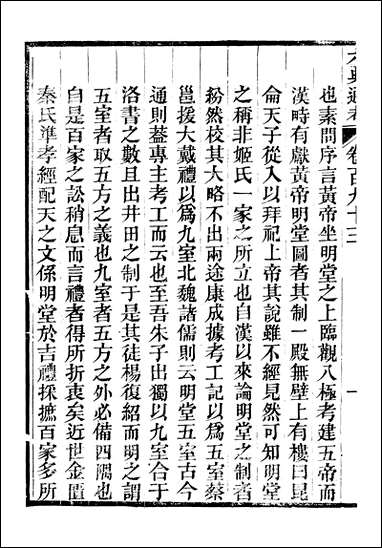 六典通考
卷百九十三
一
也素問序言黃帝坐明堂之上臨觀八極考建五帝而
漢時有獻黃帝明堂圖者其制一殿無壁上有樓曰昆
侖天子從入以拜祀上帝其說雖不經見然可知明堂
之稱非姬氏一家之所立也自漢以來論明堂之制者
紛然校其大略不出兩途康成據考工記以爲五室蔡
邕援大戴禮以爲九室北魏諸儒則云明堂五室古今
通則葢專主考工而云也至吾朱子出獨以九室合于
洛書之數且出井田之制于是其徒楊復紹而明之謂
五室者取五方之義也九室者五方之外必備四隅也
自是百家之訟稍息而言禮者得所折衷矣近世金匱
秦氏準孝經配天之文係明堂於吉禮採摭百家多所